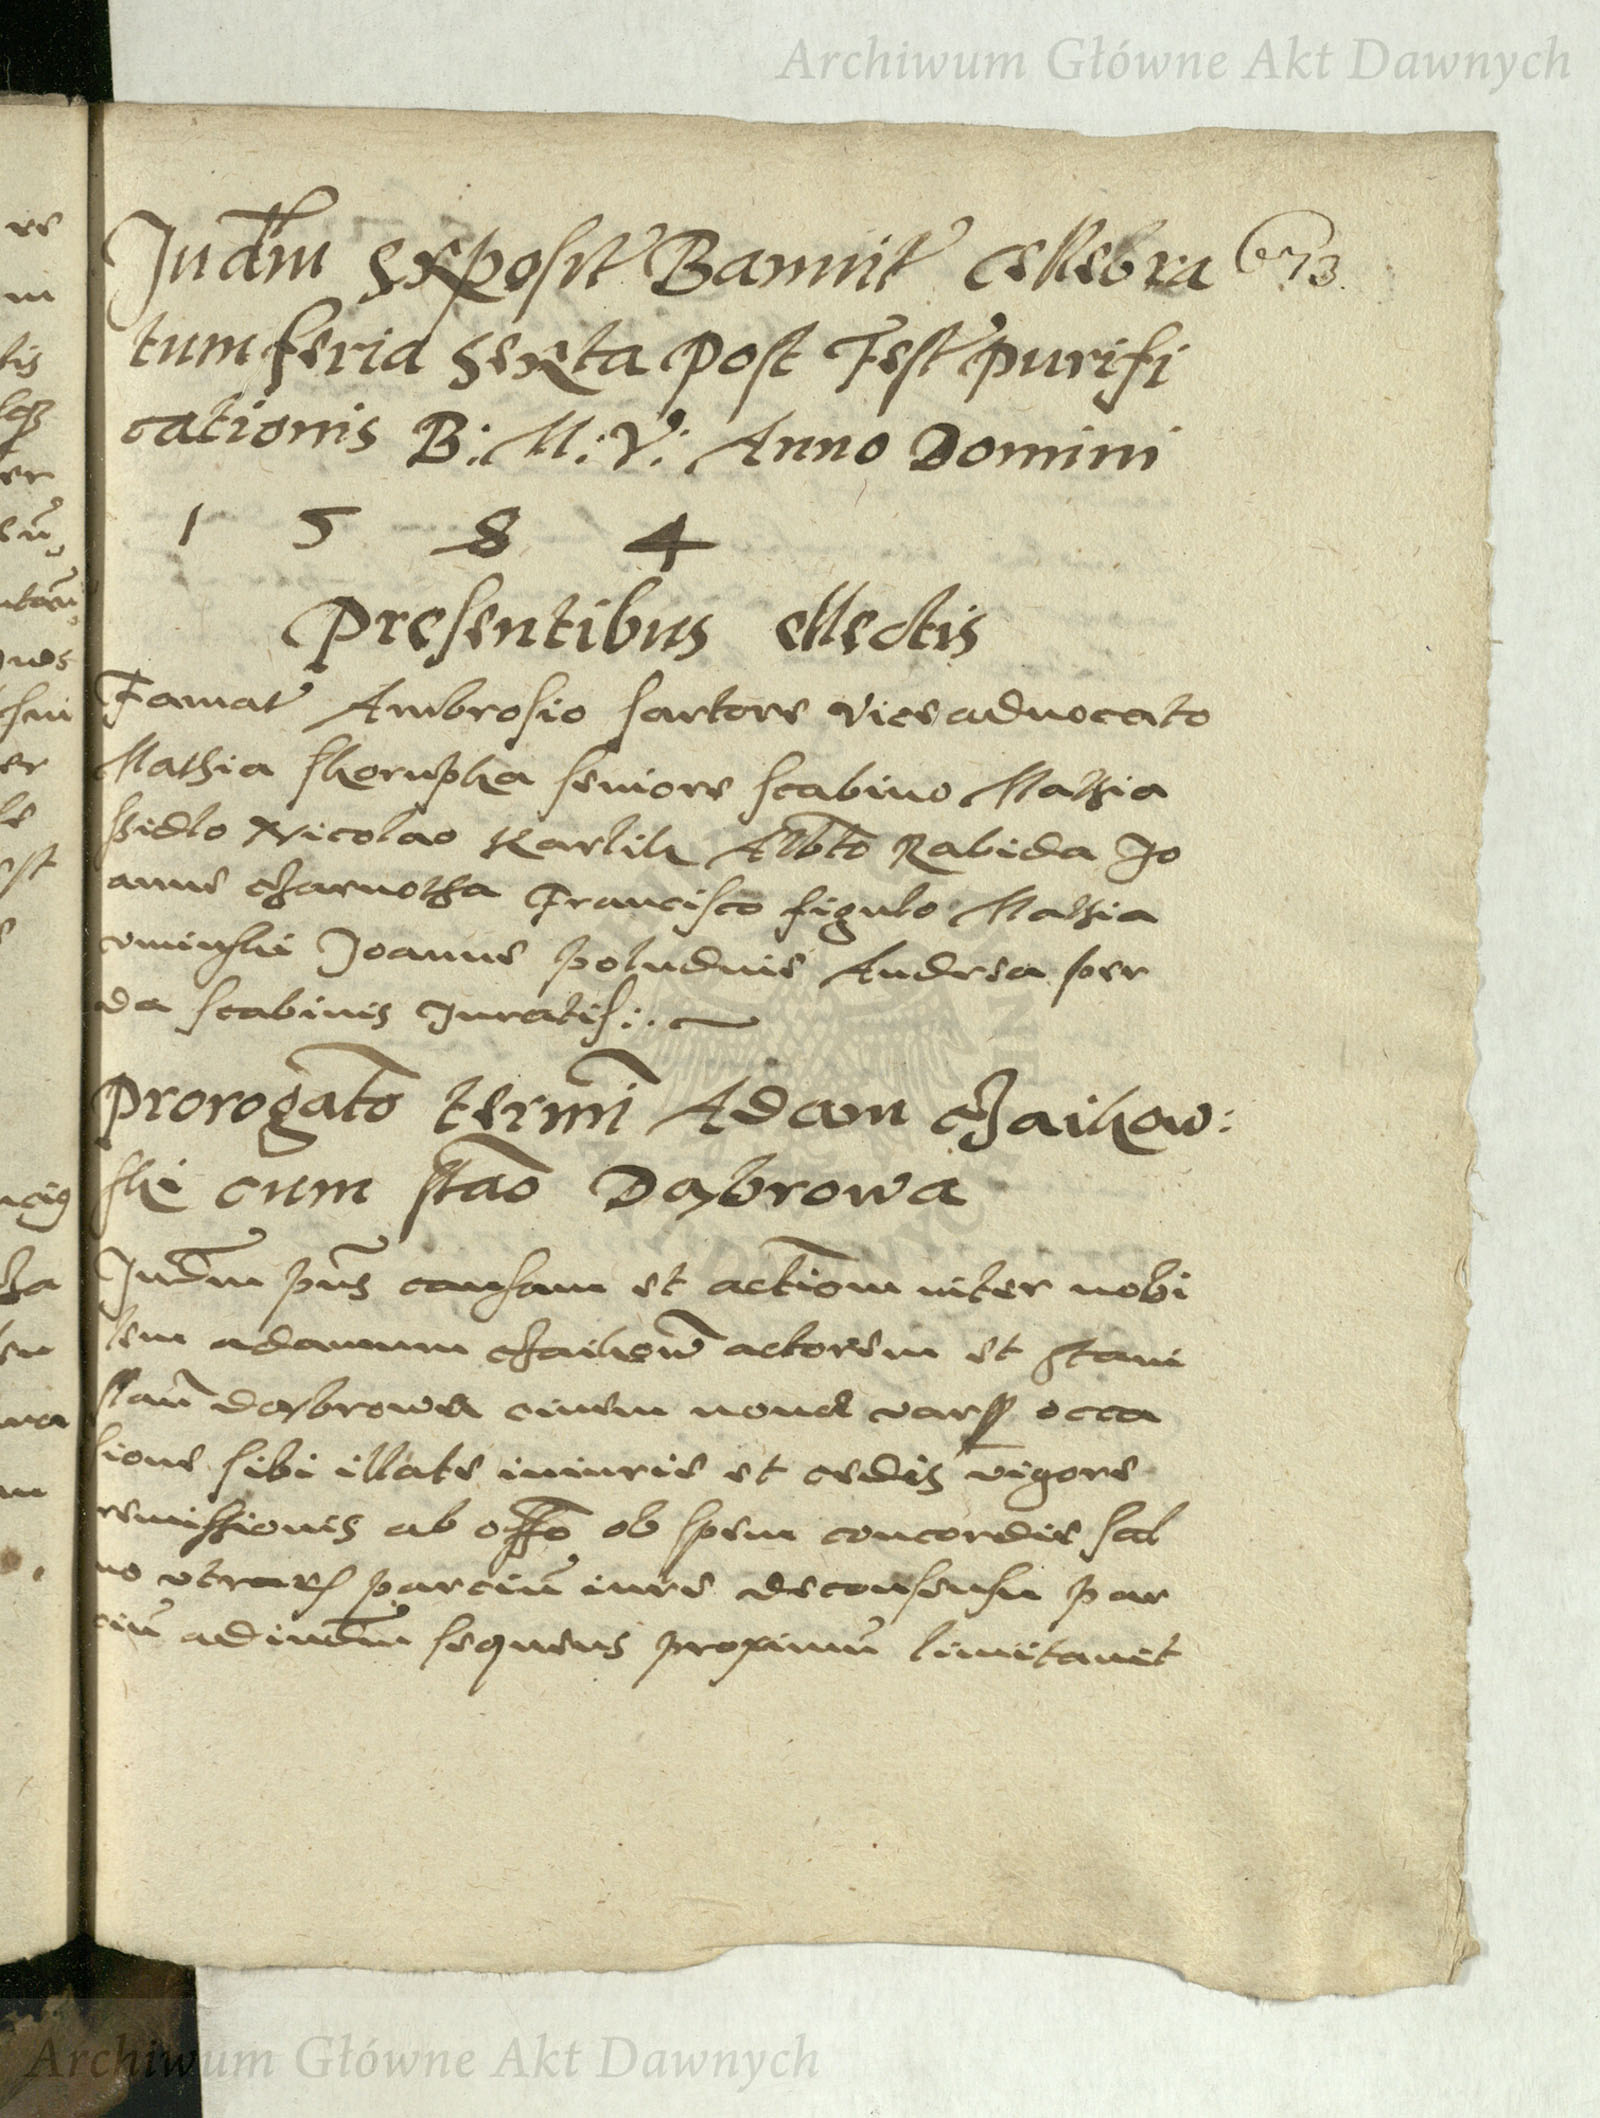 Archiwum Główne Akt Dawnych
Judm Exposit Bannit cellebra 673
tum feria sexta post Fest purifi
cationis B: M: V: Anno Domini
1 5 8 4
Presentibus ellectis
Famat Ambrosio sartore viceadvocato
Mathia skorupka seniore scabino Mathia
Nicolao Karlik Albto Rabida Jo
anne Czarnotha Francisco figulo Mathia
Joanne poludnie Andrea per
da scabinis Juratis:.
Prorogato termi Adam Czaikow:
ski cum stao Dąbrowa
Judm pns causam et actiom inter nobi
lem adamum Czaikow actorem et stani
slau dąbrowa civem nova vars occa
sione sibi illate iniurie et cedis vigore
remissionis ab offo ob spem concordie sal
vo utrarq parciu iure de consensu par
ciu ad iudm sequens proximu limitavit
re
m
tis
er
ws
er
le
est
ncig
wa
m
Archiwum Główne Akt Dawnych